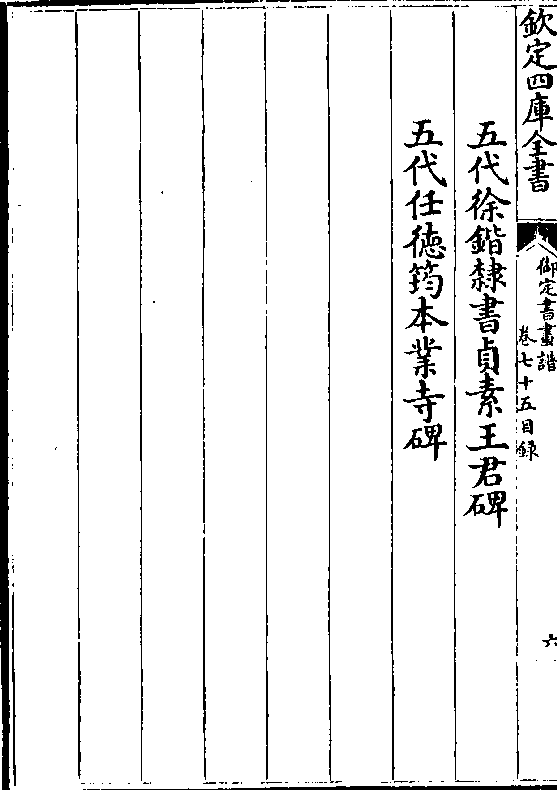 欽定四庫全書
御定書畫譜
卷七十五目録
六
五代徐鍇隸書貞素王君碑
五代任德筠本業寺碑